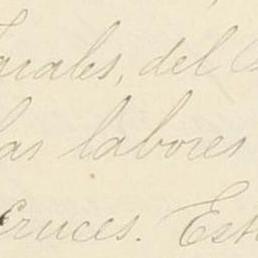 rales, del
las labores
Cruces. Est